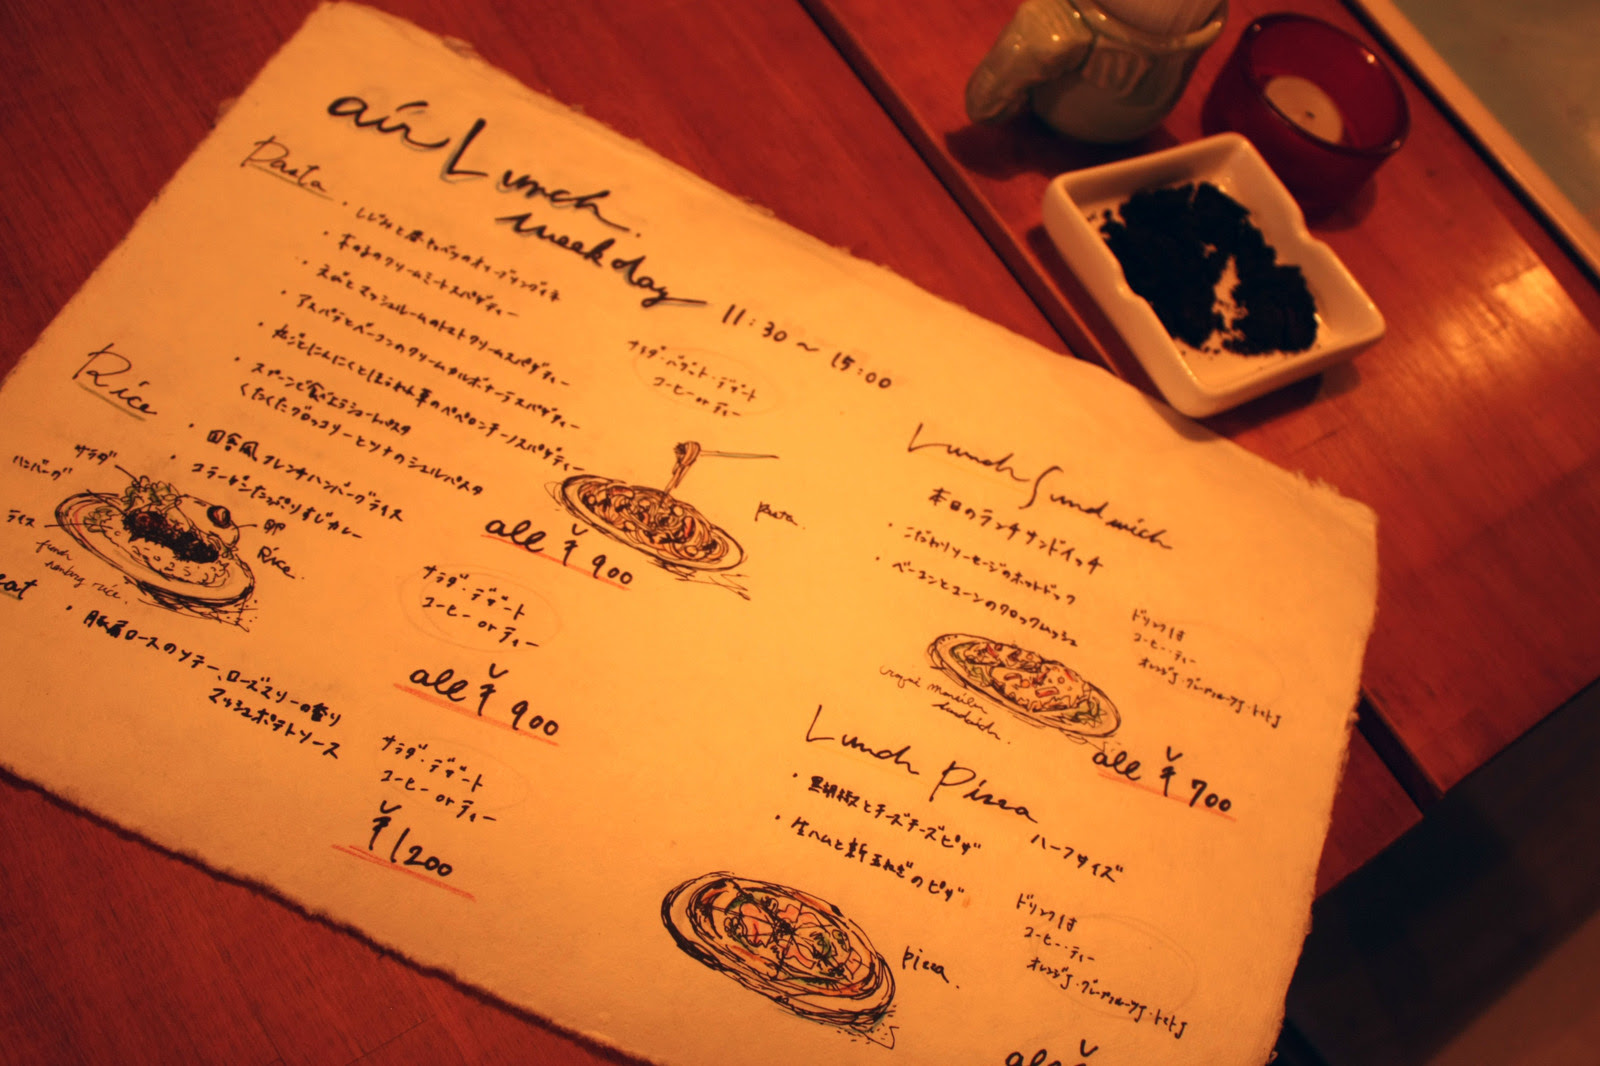 air Lunch
weekday 11:30〜15:00
Pasta
・しじみと春キャベツのオイルヴォンゴレ
・木の子のクリームミートスパゲティー
・えびとマッシュルームのトマトクリームスパゲティー
・アスパラとベーコンのクリームカルボナーラスパゲティー
・丸ごとにんにくとほうれん草のペペロンチーノスパゲティー
・スプーンで食べるショートパスタ
くたくたブロッコリーとツナのシェルパスタ
サラダ・バゲット・デザート
コーヒー or ティー
pasta.
all ¥900
Rice
・田舎風フレンチハンバーグライス
・コラーゲンたっぷりすじカレー
サラダ
ハンバーグ
ライス
卵
Rice.
サラダ・デザート
コーヒー or ティー
all ¥900
eat
・豚肩ロースのソテー、ローズマリーの香り
マッシュポテトソース
サラダ・デザート
コーヒー or ティー
¥1200
Lunch Sandwich
本日のランチサンドイッチ
・こだわりソーセージのホットドック
・ベーコンとコーンのクロックムッシュ
ドリンクは
コーヒー・ティー
オレンジJ・グレープフルーツJ・トマトJ
sandwich.
all ¥700
Lunch Pizza ハーフサイズ
・黒胡椒とチーズチーズピザ
・生ハムと新玉ねぎのピザ
ドリンクは
コーヒー・ティー
オレンジJ・グレープフルーツJ・トマトJ
pizza.
all ¥